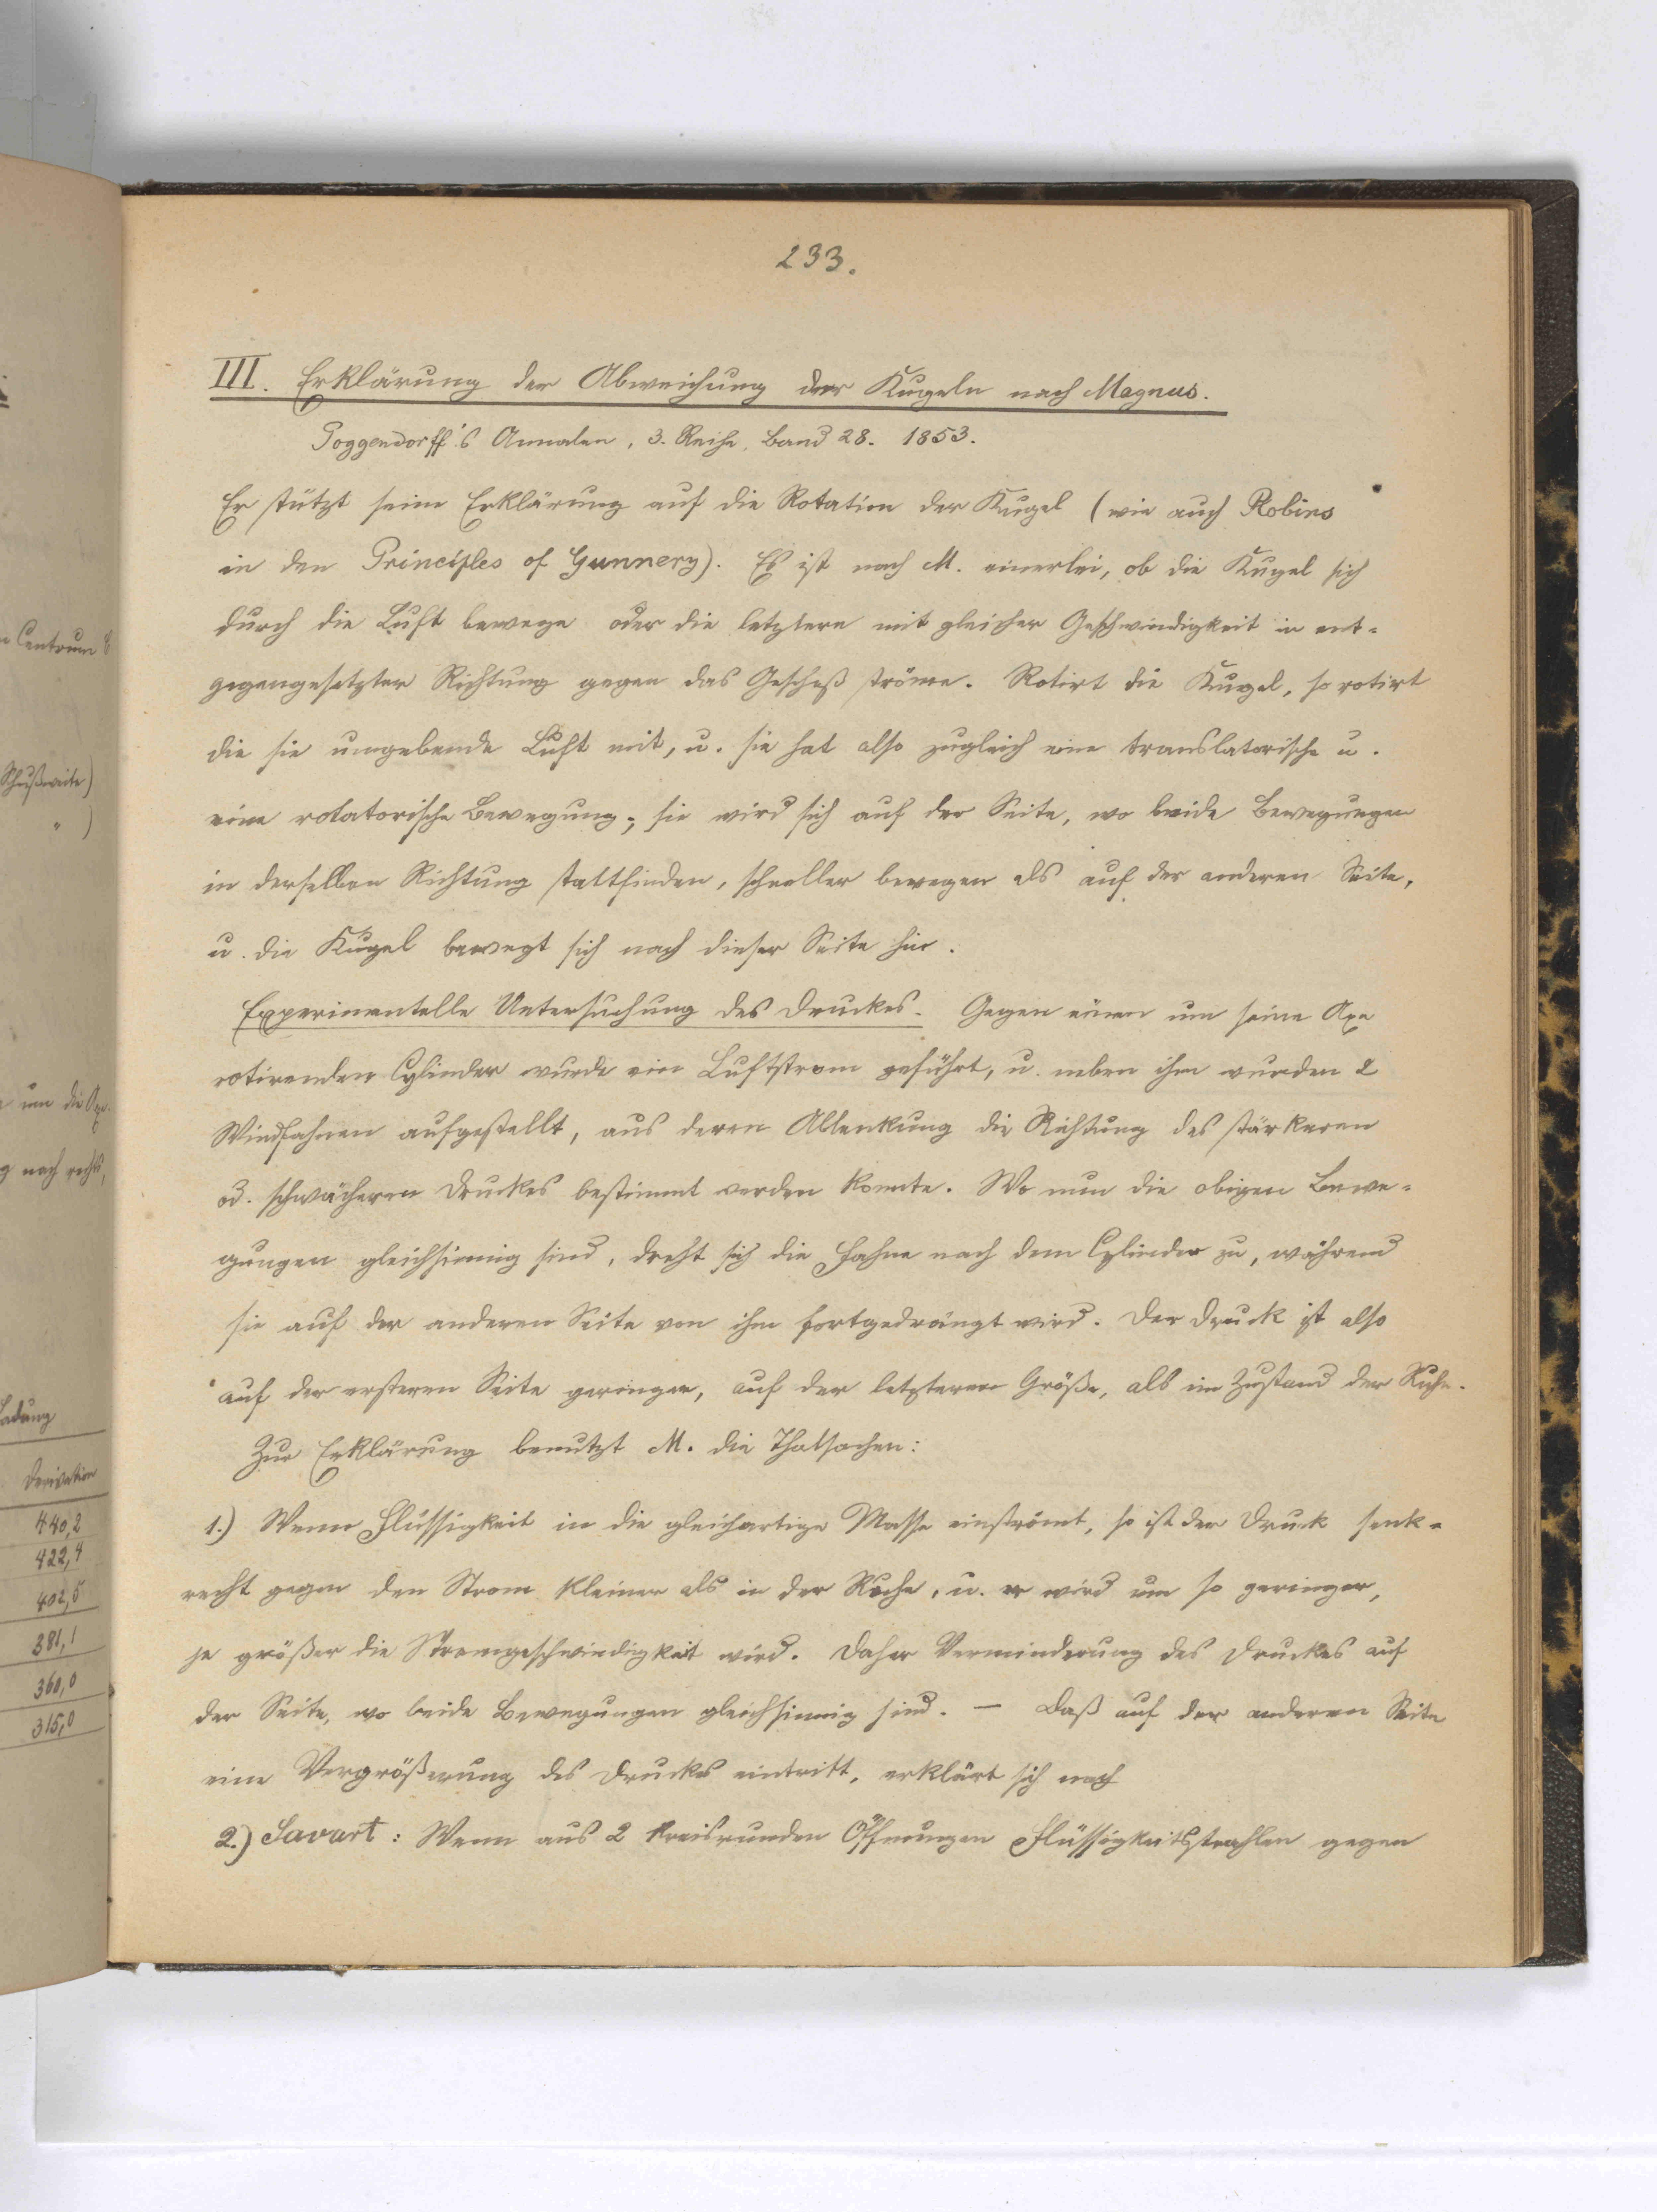 233.
III. Erklärung der Abweichung der Kugeln nach Magnus.
Poggendorff's Annalen, 3. Reihe, Band 28. 1853.
Er stützt seine Erklärung auf die Rotation der Kugel (wie auch Robins
in den Principles of Gunnery). Es ist nach M. einerlei, ob die Kugel sich
durch die Luft bewege oder die letztere mit gleicher Geschwindigkeit in ent-
gegengesetzter Richtung gegen das Geschoß ströme. Rotirt die Kugel, so rotirt
die sie umgebende Luft mit, u. sie hat also zugleich eine translatorische u.
eine rotatorische Bewegung; sie wird sich auf der Seite, wo beide Bewegungen
in derselben Richtung stattfinden, schneller bewegen als auf der anderen Seite,
u. die Kugel bewegt sich nach dieser Seite hin.
Experimentelle Untersuchung des Druckes. Gegen einen um seine Axe
rotirenden Cylinder wurde ein Luftstrom geführt, u. neben ihm wurden 2
Windfahnen aufgestellt, aus deren Ablenkung die Richtung des stärkeren
od. schwächeren Druckes bestimmt werden konnte. Wo nun die obigen Bewe-
gungen gleichsinnig sind, dreht sich die Fahne nach dem Cylinder zu, während
sie auf der anderen Seite von ihm fortgedrängt wird. Der Druck ist also
auf der ersteren Seite geringer, auf der letzteren Größe, als im Zustand der Ruhe.
Zur Erklärung benutzt M. die Thatsachen:
1.) Wenn Flüssigkeit in die gleichartige Masse einströmt, so ist der Druck senk-
recht gegen den Strom kleiner als in der Ruhe, u. er wird um so geringer,
je größer die Stromgeschwindigkeit wird. Daher Verminderung des Druckes auf
der Seite, wo beide Bewegungen gleichsinnig sind. — Daß auf der anderen Seite
eine Vergrößerung des Druckes eintritt, erklärt sich nach
2.) Savart: Wenn aus 2 kreisrunden Öffnungen Flüssigkeitsstrahlen gegen
Centrum
Schußweite)
" )
um die Axe
nach rechts,
Ladung
Derivation
440,2
422,4
402,5
381,1
360,0
315,0